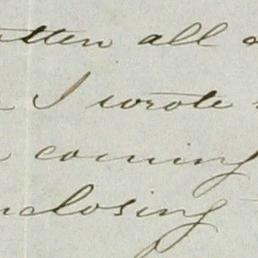 all
I wrote
coming
closing